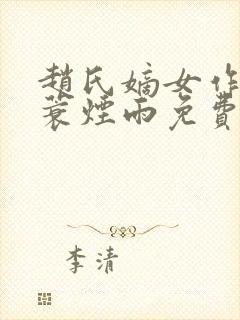 趙氏嫡女作
蓑煙雨免費
李清